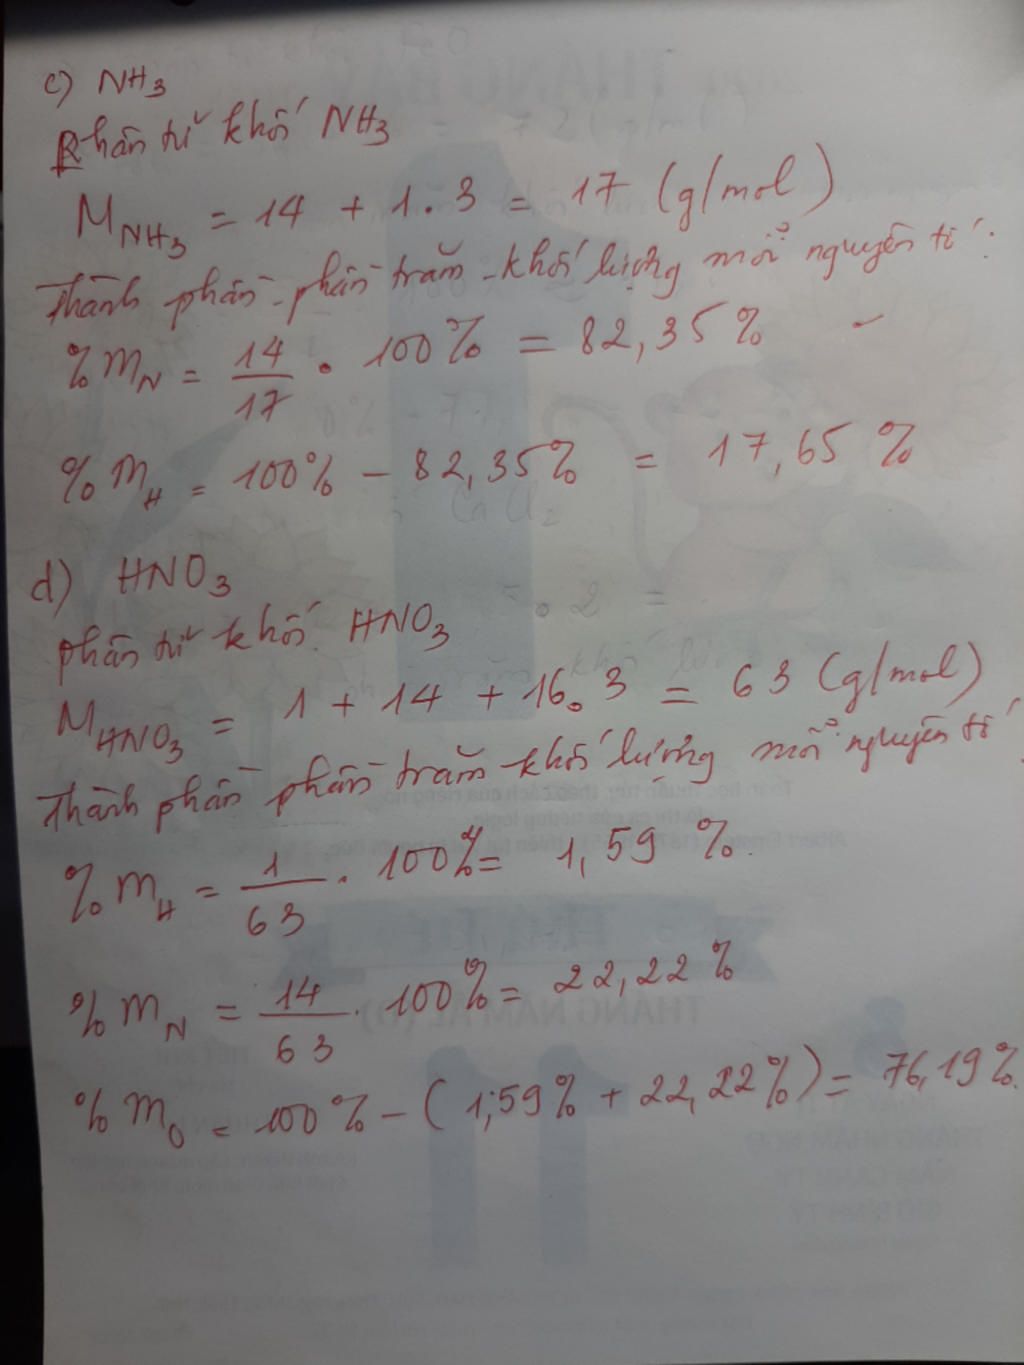 c) NH3
Phân tử khối NH3
MNH3 = 14 + 1.3 = 17 (g/mol)
Thành phần phần trăm khối lượng mỗi nguyên tố:
%mN = 14/17 . 100% = 82,35%
%mH = 100% - 82,35% = 17,65%
d) HNO3
phân tử khối HNO3
MHNO3 = 1 + 14 + 16.3 = 63 (g/mol)
Thành phần phần trăm khối lượng mỗi nguyên tố
%mH = 1/63 . 100% = 1,59%.
%mN = 14/63 . 100% = 22,22%
%mO = 100% - (1,59% + 22,22%) = 76,19%.